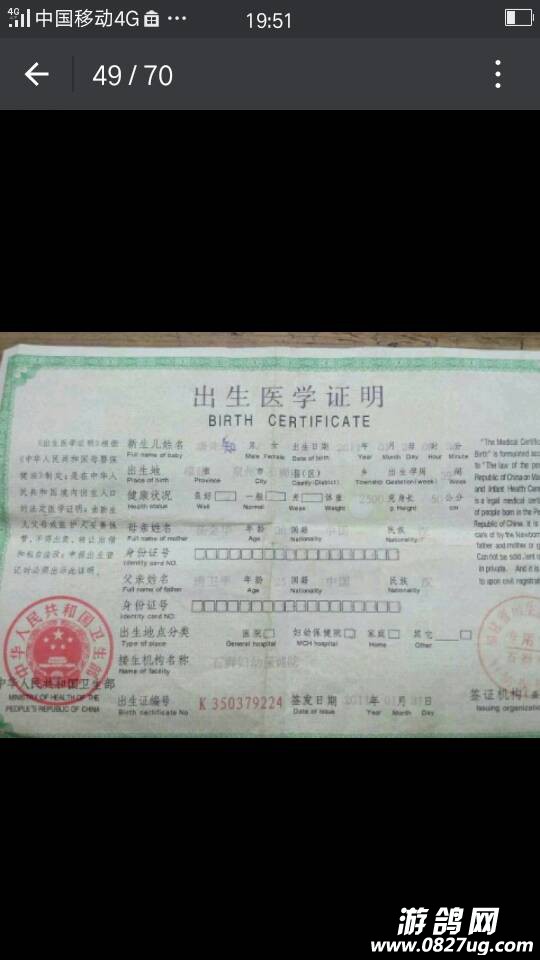 中国移动4G
19:51
49 / 70
出生医学证明
BIRTH CERTIFICATE
《出生医学证明》根据
《中华人民共和国母婴保
健法》制定,是在中华人
民共和国境内出生人口
的法定医学证明,由新生
儿父母或监护人妥善保
管,不得出卖、转让出借
和私自涂改,申报出生登
记时必须出示此证明。
新生儿姓名 男 女 出生日期 年 月 日 时 分
Full name of baby Male Female Date of birth Year Month Day Hour Minute
出生地 省 市 县(区) 乡 出生孕周 周
Place of birth Province City County(District) Township Gestation(week) Week
健康状况 良好 一般 差 体重 2500克 身长 50公分
Health status Well Normal Weak Weight g. Height cm
母亲姓名 年龄 国籍 中国 民族
Full name of mother Age Nationality Nationality
身份证号
Identity card NO.
父亲姓名 年龄 国籍 中国 民族 汉
Full name of father Age Nationality Nationality
身份证号
Identity card NO.
出生地点分类 医院 妇幼保健院 家庭 其它
Type of place General hospital MCH hospital Home Other
接生机构名称 石狮妇幼保健院
Name of facility
出生证编号 K 350379224 签发日期 2011年01月31日
Birth certificate No Date of issue Year Month Day
"The Medical Certific
Birth" is formulated acco
to "The law of the peo
Republic of China on Ma
and Infant Health Care
is a legal medical certi
of people born in the P
Republic of China. It is
care d by the Newborn
father and mother or g
Can not be sold ,lent
in private. And it is
to upon civil registrat
中华人民共和国卫生部
中华人民共和国卫生部
MINISTRY OF HEALTH OF THE
PEOPLE'S REPUBLIC OF CHINA
签证机构
Issuing organizatio
游鸽网
www.0827ug.com